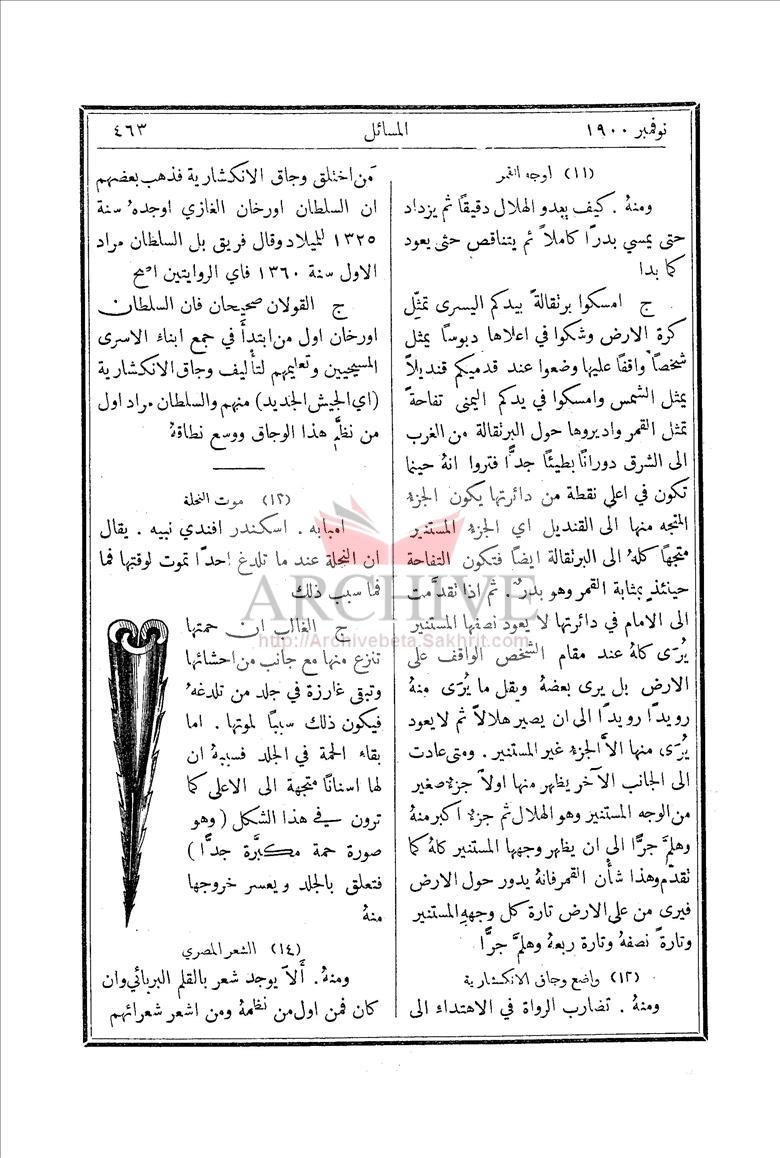 نوفمبر ١٩٠٠
المسائل
٤٦٣
(١١) اوجه القمر
ومنهُ . كيف يبدو الهلال دقيقًا ثم يزداد
حتى يمسي بدرًا كاملاً ثم يتناقص حتى يعود
كما بدا
ج امسكوا برتقالةً بيدكم اليسرى تمثّل
كرة الارض وشكوا في اعلاها دبوسًا يمثل
شخصًا واقفًا عليها وضعوا عند قدميكم قنديلاً
يمثل الشمس وامسكوا في يدكم اليمنى تفاحةً
تمثل القمر واديروها حول البرتقالة من الغرب
الى الشرق دورانًا بطيئًا جدًّا فتروا انهُ حينما
تكون في اعلى نقطة من دائرتها يكون الجزءُ
المتجه منها الى القنديل اي الجزءُ المستنير
متجهًا كلهُ الى البرتقالة ايضًا فتكون التفاحة
حينئذٍ بمثابة القمر وهو بدرٌ . ثم اذا تقدَّمت
الى الامام في دائرتها لا يعود نصفها المستنير
يُرَى كلهُ عند مقام الشخص الواقف على
الارض بل يرى بعضهُ ويقل ما يُرَى منهُ
رويدًا رويدًا الى ان يصير هلالاً ثم لا يعود
يُرَى منها الاَّ الجزءُ غير المستنير . ومتى عادت
الى الجانب الآخر يظهر منها اولاً جزءٌ صغير
من الوجه المستنير وهو الهلال ثم جزءٌ اكبر منهُ
وهلمَّ جرًّا الى ان يظهر وجهها المستنير كلهُ كما
تقدَّم وهذا شأن القمر فانهُ يدور حول الارض
فيرى من على الارض تارة كل وجههِ المستنير
وتارةً نصفهُ وتارة ربعهُ وهلمَّ جرًّا
(١٢) واضع وجاق الانكشارية
ومنهُ . تضارب الرواة في الاهتداء الى
مَن اختلق وجاق الانكشارية فذهب بعضهم
ان السلطان اورخان الغازي اوجدهُ سنة
١٣٢٥ للميلاد وقال فريق بل السلطان مراد
الاول سنة ١٣٦٠ فاي الروايتين اصح
ج القولان صحيحان فان السلطان
اورخان اول من ابتدأَ في جمع ابناء الاسرى
المسيحيين وتعليمهم لتأليف وجاق الانكشارية
(اي الجيش الجديد) منهم والسلطان مراد اول
من نظَّم هذا الوجاق ووسع نطاقهُ
(١٣) موت النحلة
امبابه . اسكندر افندي نبيه . يقال
ان النحلة عند ما تلدغ احدًا تموت لوقتها فما
فما سبب ذلك
ج الغالب ان حمتها
تنزع منها مع جانب من احشائها
وتبقى غارزة في جلد من تلدغهُ
فيكون ذلك سببًا لموتها . اما
بقاء الحمة في الجلد فسببهُ ان
لها اسنانًا متجهة الى الاعلى كما
ترون في هذا الشكل (وهو
صورة حمة مكبَّرة جدًّا)
فتعلق بالجلد ويعسر خروجها
منهُ
(١٤) الشعر المصري
ومنهُ . أَلاَ يوجد شعر بالقلم البربائي وان
كان فمن اول من نظمهُ ومن اشعر شعرائهم
ARCHIVE
http://Archivebeta.Sakhrit.com